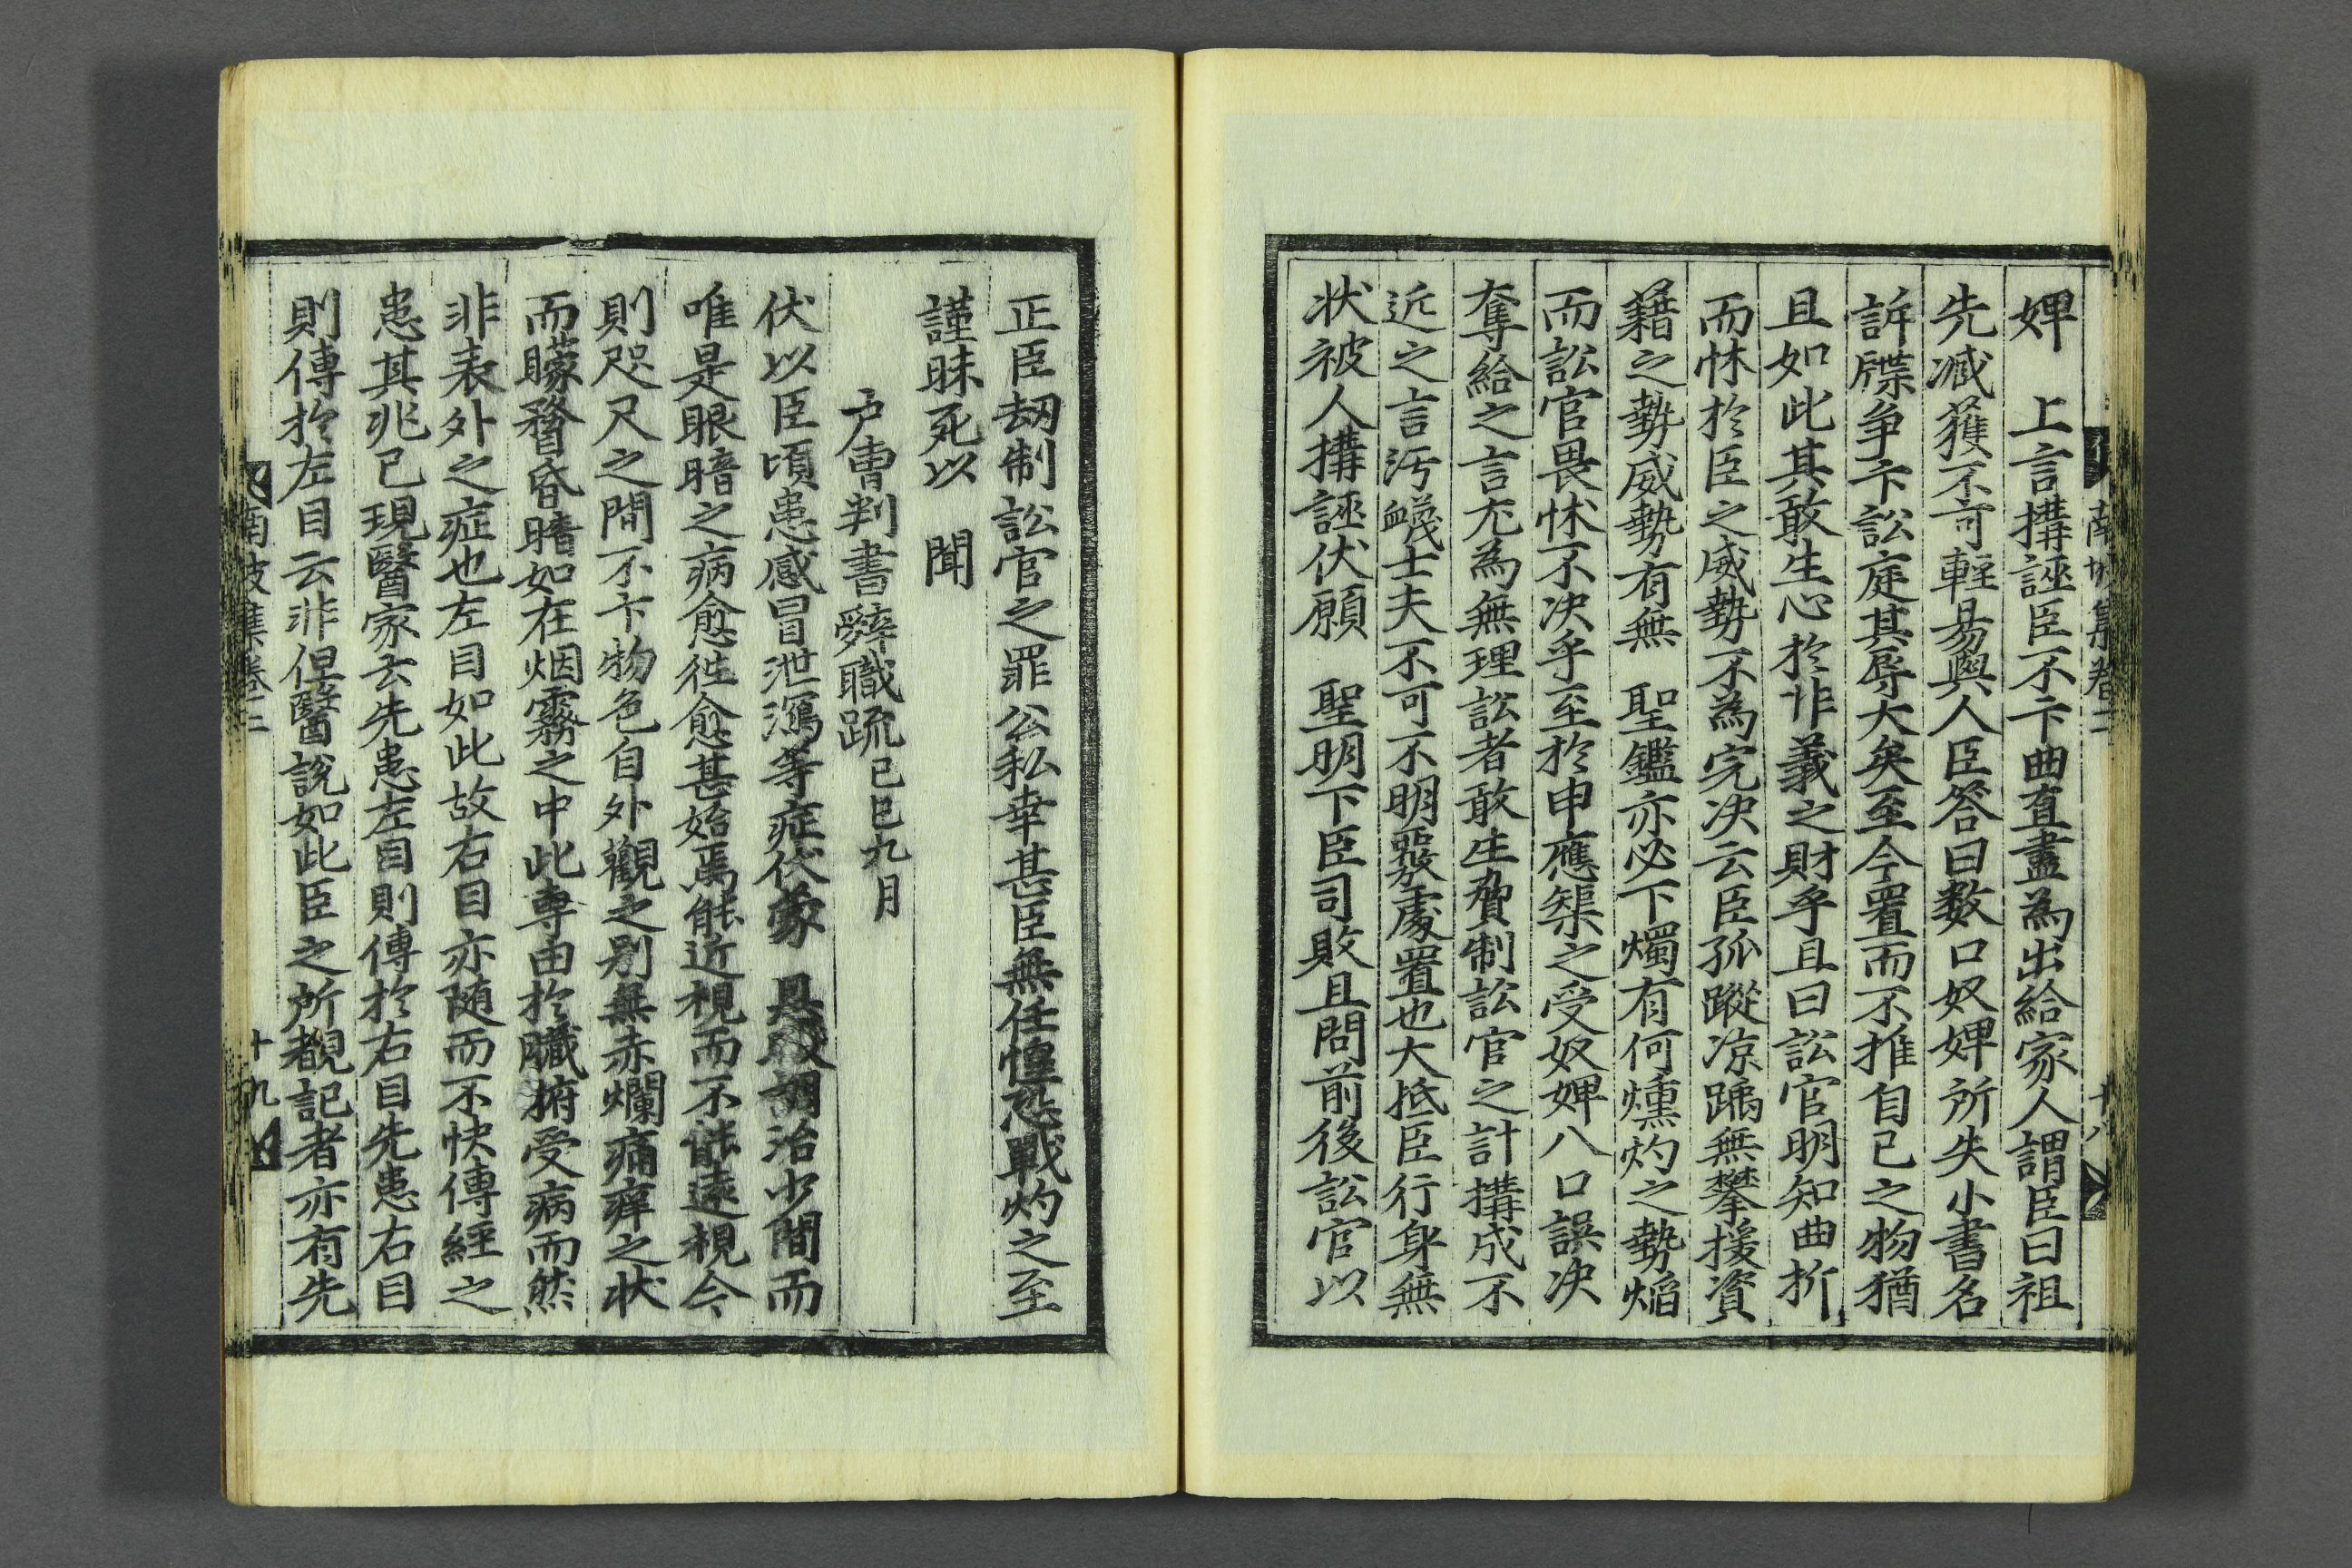 婢 上言搆誣臣不卞曲直盡為出給家人謂臣曰祖
先臧獲不可輕易與人臣答曰数口奴婢所失小書名
訴牒争卞訟庭其辱大矣至今置而不推自己之物猶
且如此其敢生心於非義之財乎且曰訟官明知曲折
而怵於臣之威勢不為完决云臣孤蹤凉踽無攀援資
藉之勢威勢有無 聖鑑亦必下燭有何燻灼之勢焰
而訟官畏怵不决乎至於申應榘之受奴婢八口誤决
奪給之言尤為無理訟者敢生脅制訟官之計搆成不
近之言汚衊士夫不可不明覈處置也大抵臣行身無
状被人搆誣伏願 聖明下臣司敗且問前後訟官以
南坡集卷二 十八
正臣刼制訟官之罪公私幸甚臣無任惶恐戰灼之至
謹昧死以 聞
户曹判書辭職疏己巳九月
伏以臣頃患感冒泄瀉等症伏蒙 恩暇調治少間而
唯是眼暗之病愈徃愈甚始焉能近視而不能遠視今
則咫尺之間不卞物色自外觀之别無赤爛痛痒之状
而矇瞀昏暗如在烟霧之中此專由於臟腑受病而然
非表外之症也左目如此故右目亦随而不快傳經之
患其兆已現醫家云先患左目則傳於右目先患右目
則傳於左目云非但醫說如此臣之所覩記者亦有先
南坡集卷二 十九